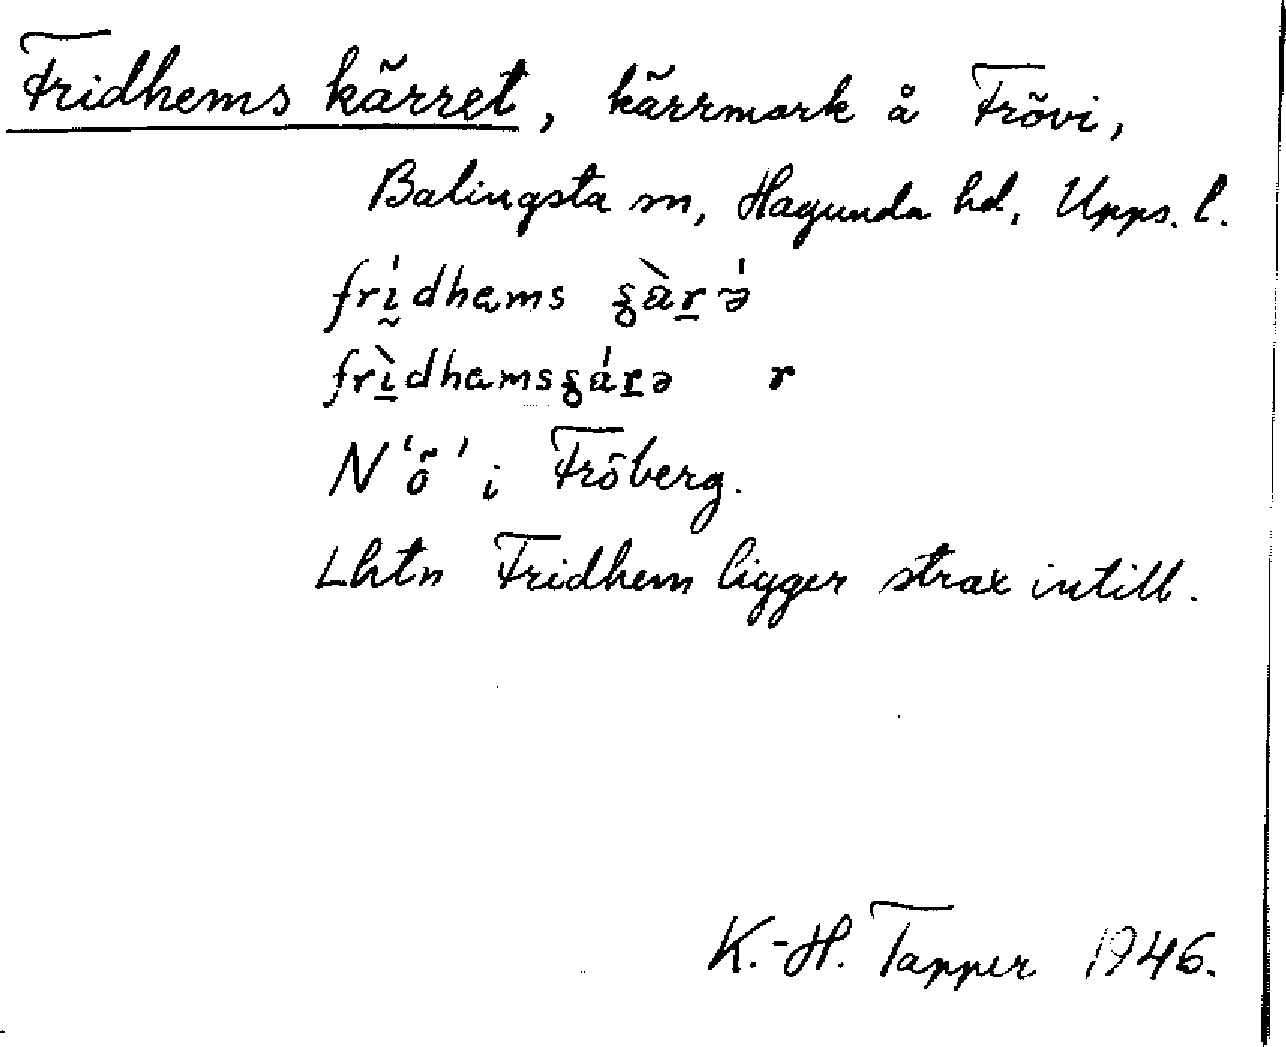 Fridhems kärret, kärrmark å Frövi,
Balingsta sn, Hagunda hd, Upps. l.
frídhems
r
N 'ö' i Fröberg.
Lhtn Fridhem ligger strax intill.
K.-H. Tapper 1946.